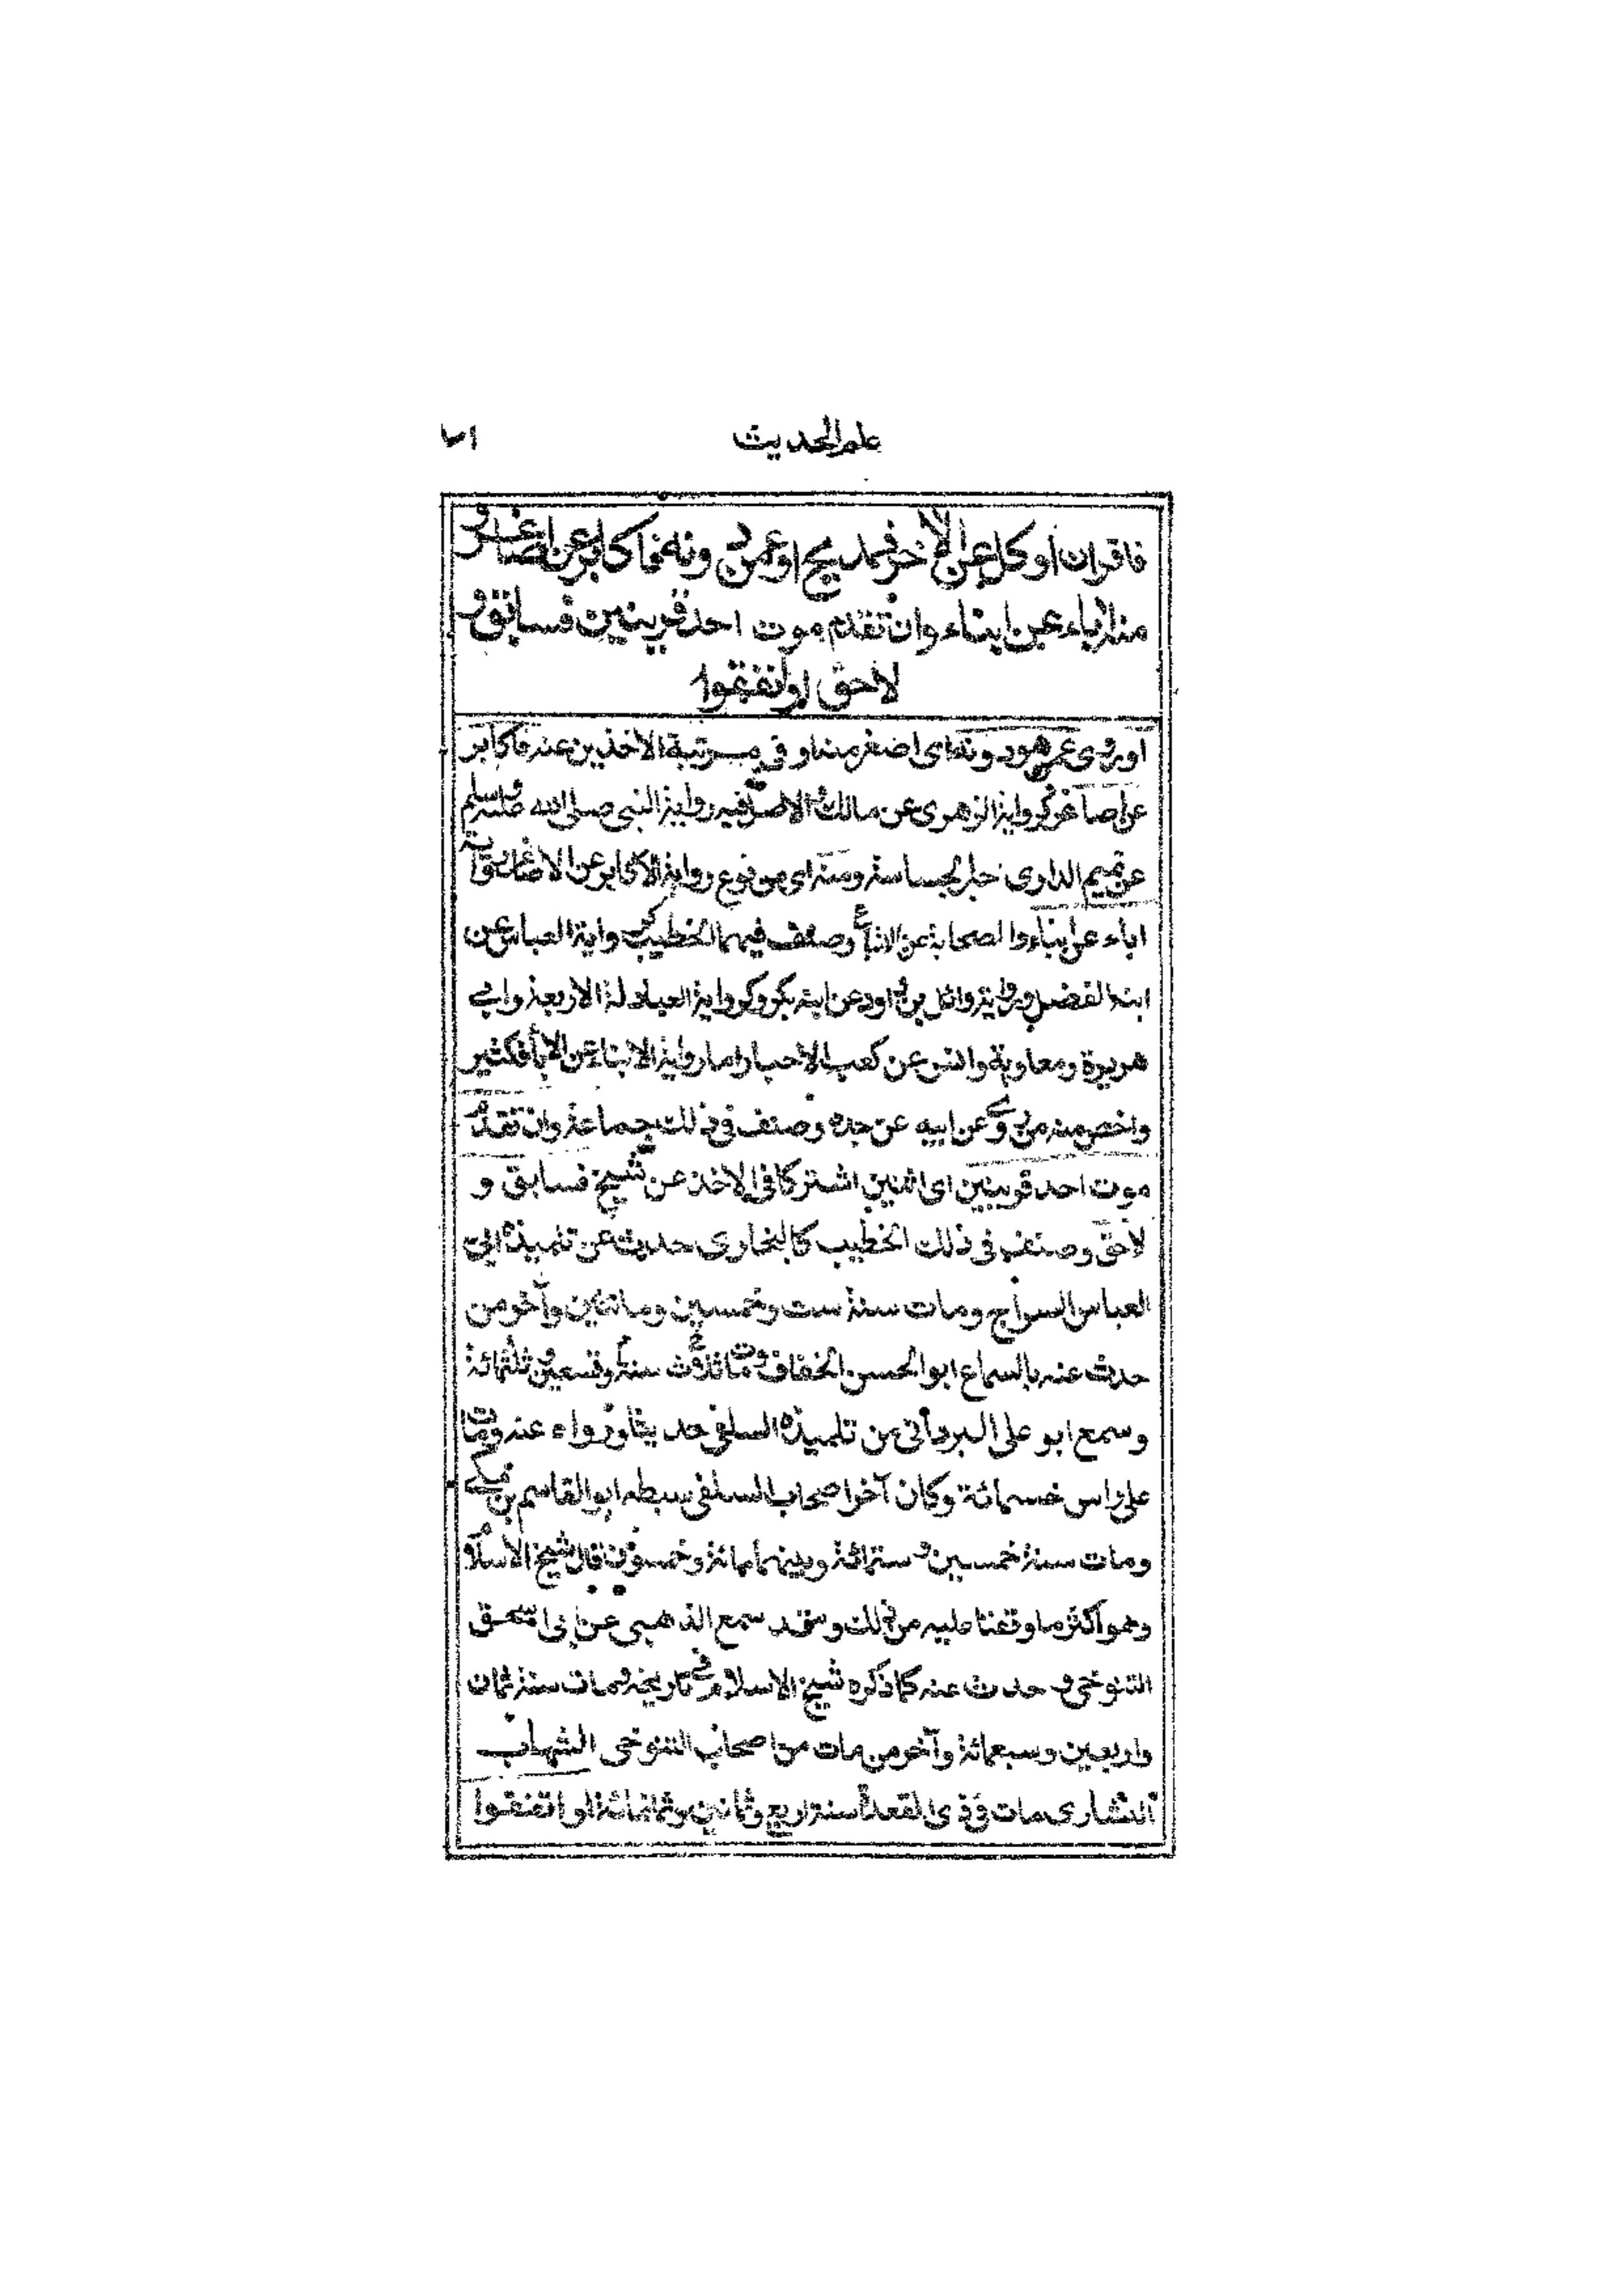 علم الحديث
فاقران او كل عن الاخر فمدبج او عمن دونه فاكابر عن اصاغر و
منه اباء عن ابناء وان تقدم موت احد قرينين فسابق و
لاحق او اتفقوا
اوروى عمن هو دونه اى اصغر منه او فى مرتبة الاخذين عنه فاكابر
عن اصاغر كرواية الزهرى عن مالك و الاصل فيه رواية النبى صلى الله عليه وسلم
عن تميم الدارى خبر الجساسة ومنه اى من نوع رواية الاكابر عن الاصاغر رواية
اباء عن ابناء والصحابة عن الاتباع وصنف فيهما الخطيب كرواية العباس عن
ابنه الفضل ورواية وائل بن داود عن ابنه بكر وكرواية العبادلة الاربعة وابى
هريرة ومعاوية وانس عن كعب الاحبار اما رواية الابناء عن الاباء فكثير
واخص منه من روى عن ابيه عن جده وصنف فى ذلك جماعة وان تقدم
موت احد قرينين اى اثنين اشتركا فى الاخذ عن شيخ فسابق و
لاحق وصنف فى ذلك الخطيب كالبخارى حدث عن تلميذه ابى
العباس السراج ومات سنة ست وخمسين ومائتين وآخر من
حدث عنه بالسماع ابو الحسن الخفاف ومات ثلاث سنة وتسعين وثلثمائة
وسمع ابو على البردانى من تلميذه السلفى حديثا ورواه عنه ومات
على راس خمسمائة وكان آخر اصحاب السلفى سبطه ابو القاسم بن مكى
ومات سنة خمسين و ستمائة وبينهما مائة وخمسون قال شيخ الاسلام
وهو اكثر ما وقفنا عليه من ذلك وقد سمع الذهبى عن ابى اسحق
التنوخى و حدث عنه كما ذكره شيخ الاسلام فى تاريخه ومات سنة ثمان
واربعين وسبعمائة وآخر من مات من اصحاب التنوخى الشهاب
الشاوى مات فى ذى القعدة سنة اربع وثمانين وثمانمائة او اتفقوا